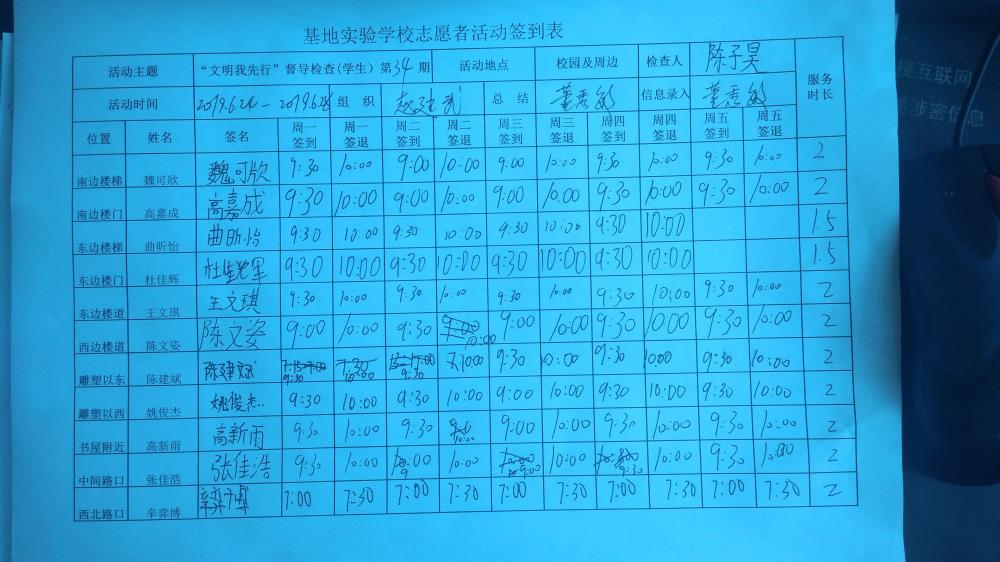 基地实验学校志愿者活动签到表
活动主题 “文明我先行”督导检查(学生)第34期 活动地点 校园及周边 检查人 陈子昊 服务时长
活动时间 2019.6.24-2019.6.28 组 织 总 结 董秀敏 信息录入 董秀敏
位置 姓名 签名 周一签到 周一签退 周二签到 周二签退 周三签到 周三签退 周四签到 周四签退 周五签到 周五签退
南边楼梯 魏可欣 魏可欣 9:30 10:00 9:00 10:00 9:00 10:00 9:30 10:00 9:30 10:00 2
南边楼门 高嘉成 高嘉成 9:30 10:00 9:00 10:00 9:00 10:00 9:30 10:00 9:30 10:00 2
东边楼梯 曲昕怡 曲昕怡 9:30 10:00 9:30 10:00 9:30 10:00 9:30 10:00 1.5
东边楼门 杜佳辉 杜佳辉 9:30 10:00 9:30 10:00 9:30 10:00 9:30 10:00 1.5
东边楼道 王文琪 王文琪 9:30 10:00 9:30 10:00 9:30 10:00 9:30 10:00 9:30 10:00 2
西边楼道 陈文姿 陈文姿 9:00 10:00 9:30 10:00 9:00 10:00 9:30 10:00 9:30 10:00 2
雕塑以东 陈建斌 陈建斌 9:30 10:00 9:30 10:00 9:30 10:00 9:30 10:00 9:30 10:00 2
雕塑以西 姚俊杰 姚俊杰 9:30 10:00 9:30 10:00 9:00 10:00 9:30 10:00 9:30 10:00 2
书屋附近 高新雨 高新雨 9:30 10:00 9:30 10:00 9:00 10:00 9:30 10:00 9:30 10:00 2
中间路口 张佳浩 张佳浩 9:30 10:00 10:00 9:00 10:00 9:30 10:00 9:30 10:00 2
西北路口 辛弈博 7:00 7:30 7:00 7:30 7:00 7:30 7:00 7:30 7:00 7:30 2
接互联网
涉密信息